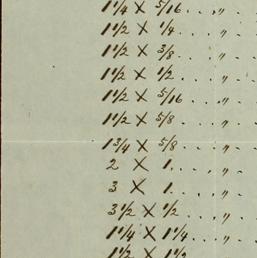 1 1/4 X 5/16 . . . " . -
1 1/2 X 1/4 . . . . " . -
1 1/2 X 3/8 . . . . " . -
1 1/2 X 1/2 . . . . " . -
1 1/2 X 5/16 . . . " . -
1 1/2 X 5/8 . . . . " . -
1 3/4 X 5/8 . . . . " . -
2 X 1 . . . . " . -
3 X 1 . . . . " . -
3 1/2 X 1/2 . . . " . -
1 1/4 X 1 1/4 . . . " . -
1 1/2 X 1 1/2